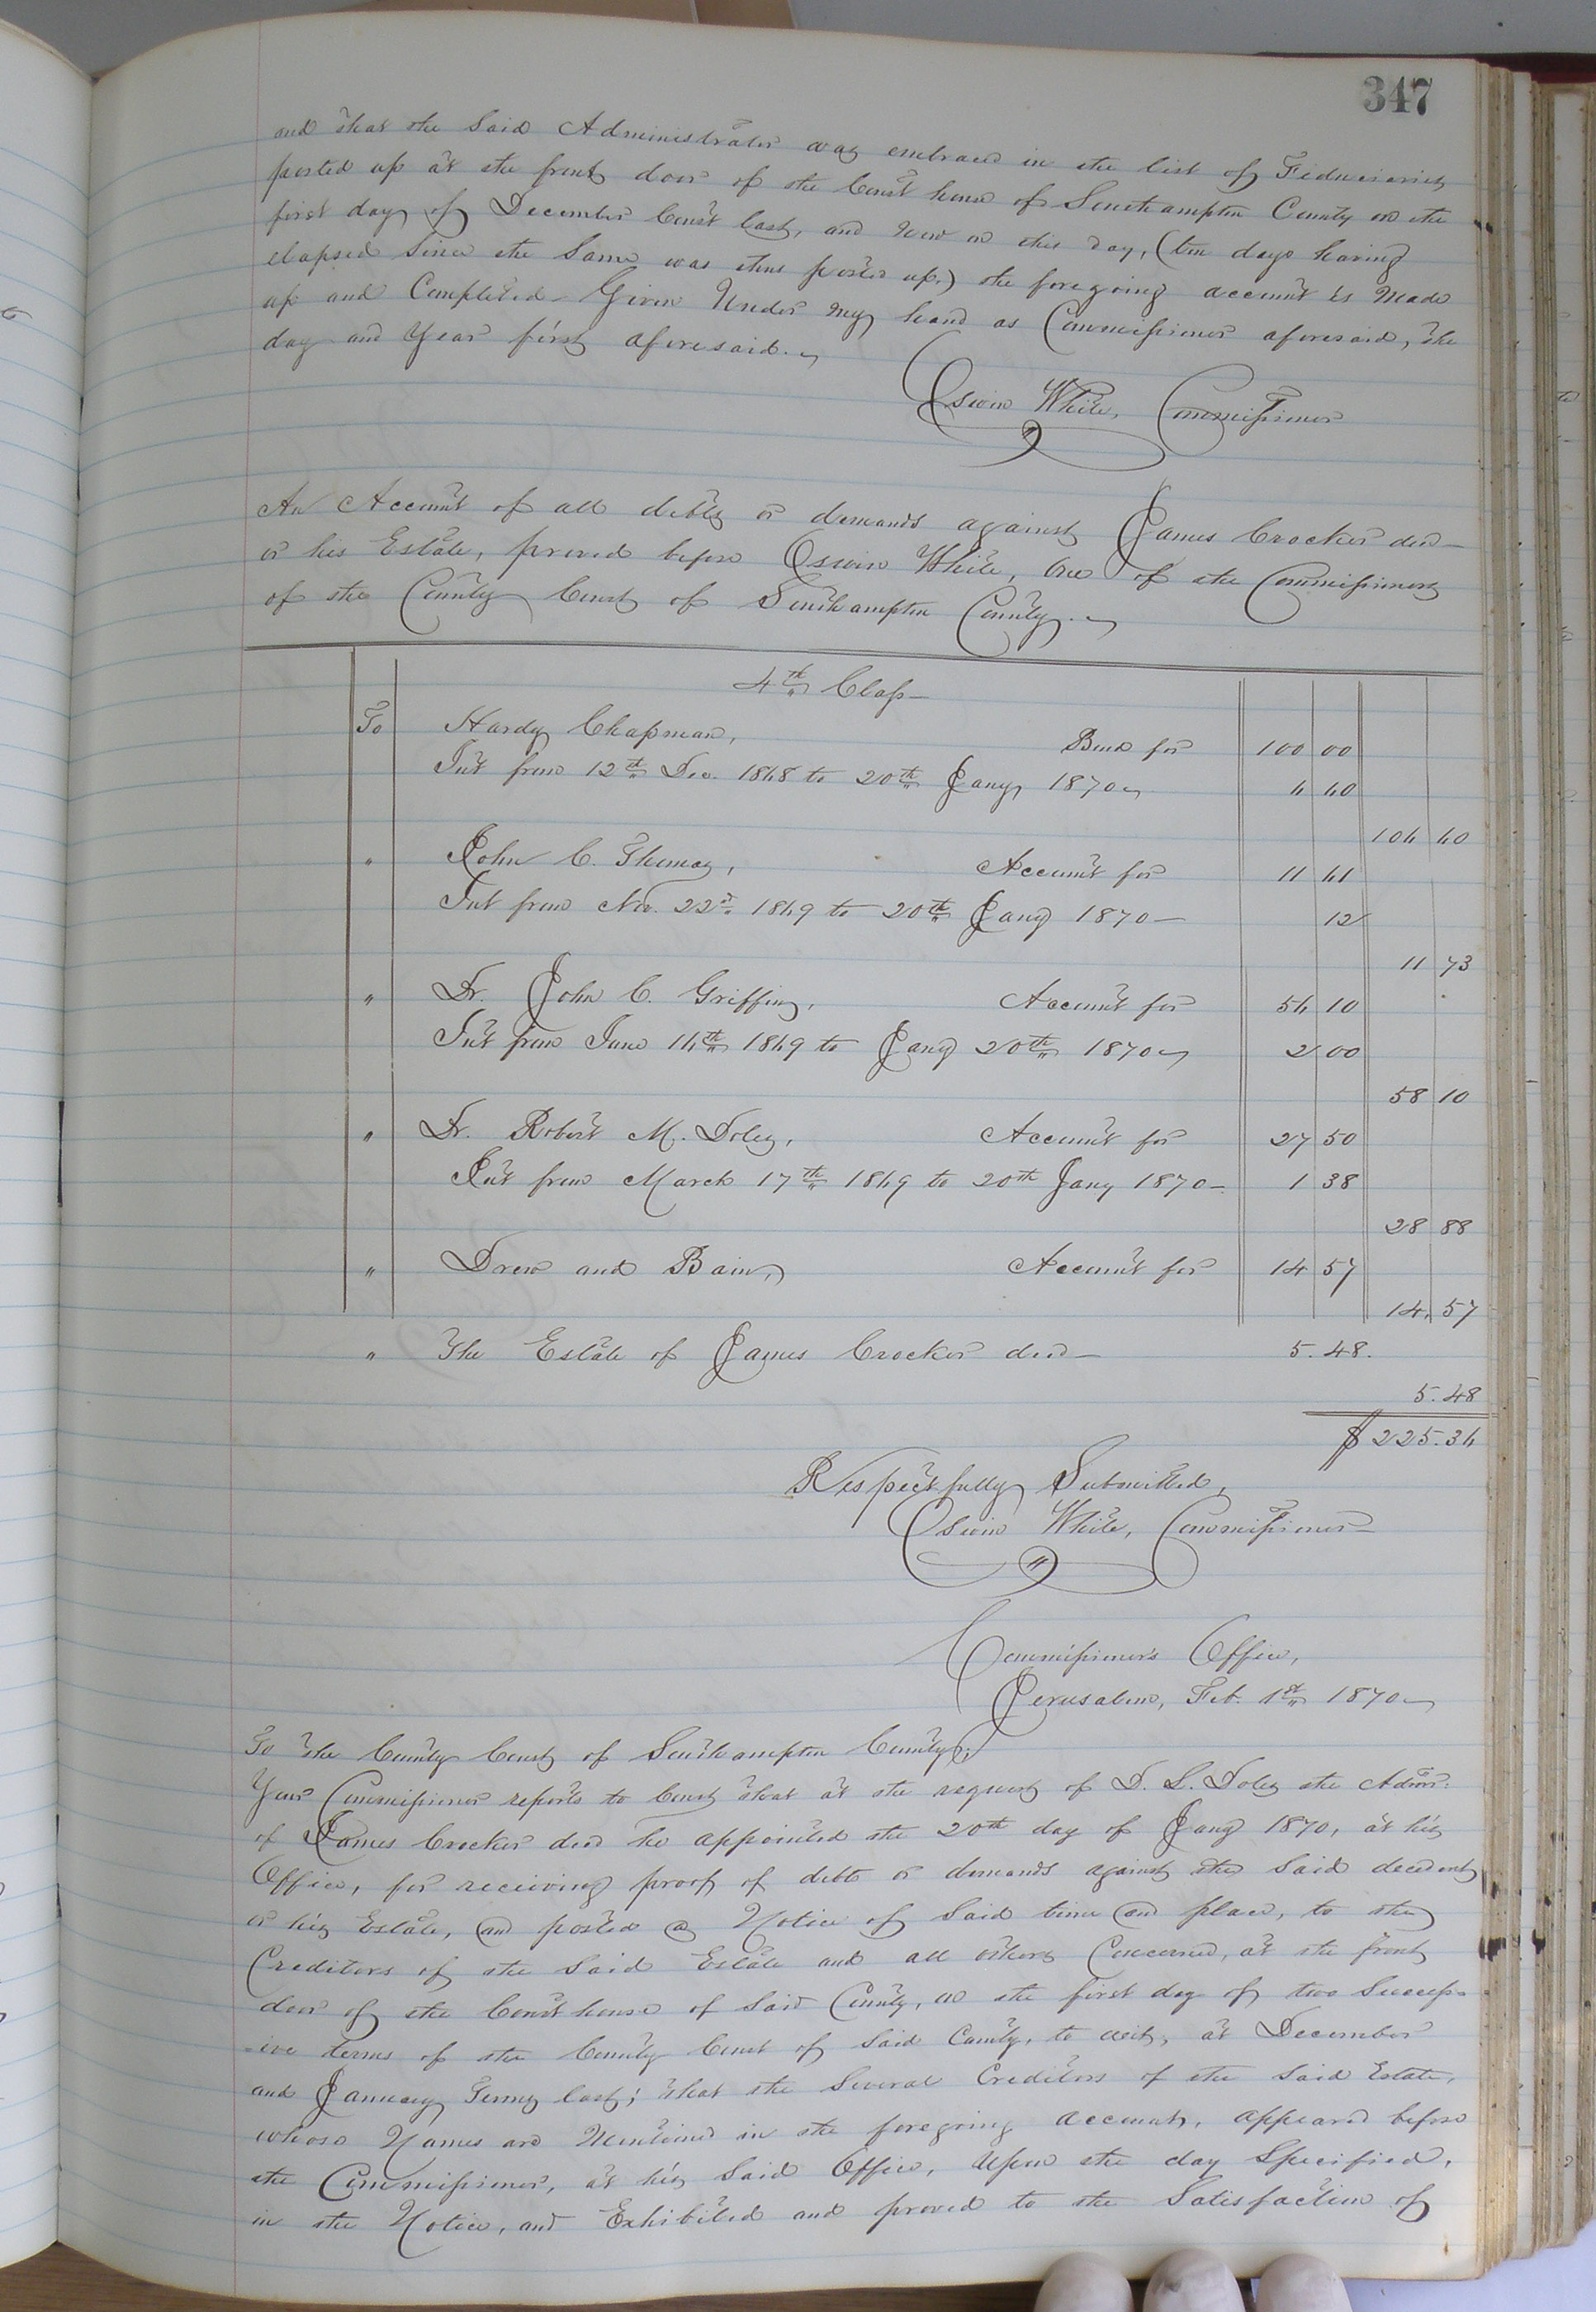 347
and that the said Administrator was embraced in the list of Fiduciaries
posted up at the front door of the Court house of Southampton County on the
first day of December Court last, and now on this day, (ten days having
elapsed since the same was thus posted up.) the foregoing account is made
up and Completed. Given Under my hand as Commissioner aforesaid, the
day and Year first aforesaid.
Oswin White, Commissioner
An Account of all debts or demands against James Crocker decd
or his Estate, proved before Oswin White, One of the Commissioners
of the County Court of Southampton County.
4th Class
To Hardy Chapman, Bond for 100 00
Int from 12th Dec. 1868 to 20th Jany 1870 6 60
106 60
" John C. Thomas, Account for 11 61
Int from Nov. 22d 1869 to 20th Jany 1870 12
11 73
" Dr. John C. Griffin, Account for 56 10
Int from June 16th 1869 to Jany 20th 1870 2 00
58 10
" Dr. Robert M. Doles, Account for 27 50
Int from March 17th 1869 to 20th Jany 1870 1 38
28 88
" Drew and Bain, Account for 14 57
14 57
" The Estate of James Crocker decd 5.48.
5.48
$225.36
Respectfully Submitted,
Oswin White, Commissioner
Commissioner's Office,
Jerusalem, Feb. 1st 1870
To the County Court of Southampton County;
Your Commissioner reports to Court that at the request of D. L. Doles the Admr.
of James Crocker decd he appointed the 20th day of Jany 1870, at his
Office, for receiving proof of debts or demands against the said decedent
or his Estate, and posted a Notice of said time and place, to the
Creditors of the said Estate and all others Concerned, at the front
door of the Court house of said County, on the first day of two Success=
=ive terms of the County Court of said County, to wit, at December
and January Terms last; that the several Creditors of the said Estate,
whose Names are Mentioned in the foregoing account, appeared before
the Commissioner, at his said Office, Upon the day Specified,
in the Notice, and Exhibited and proved to the Satisfaction of